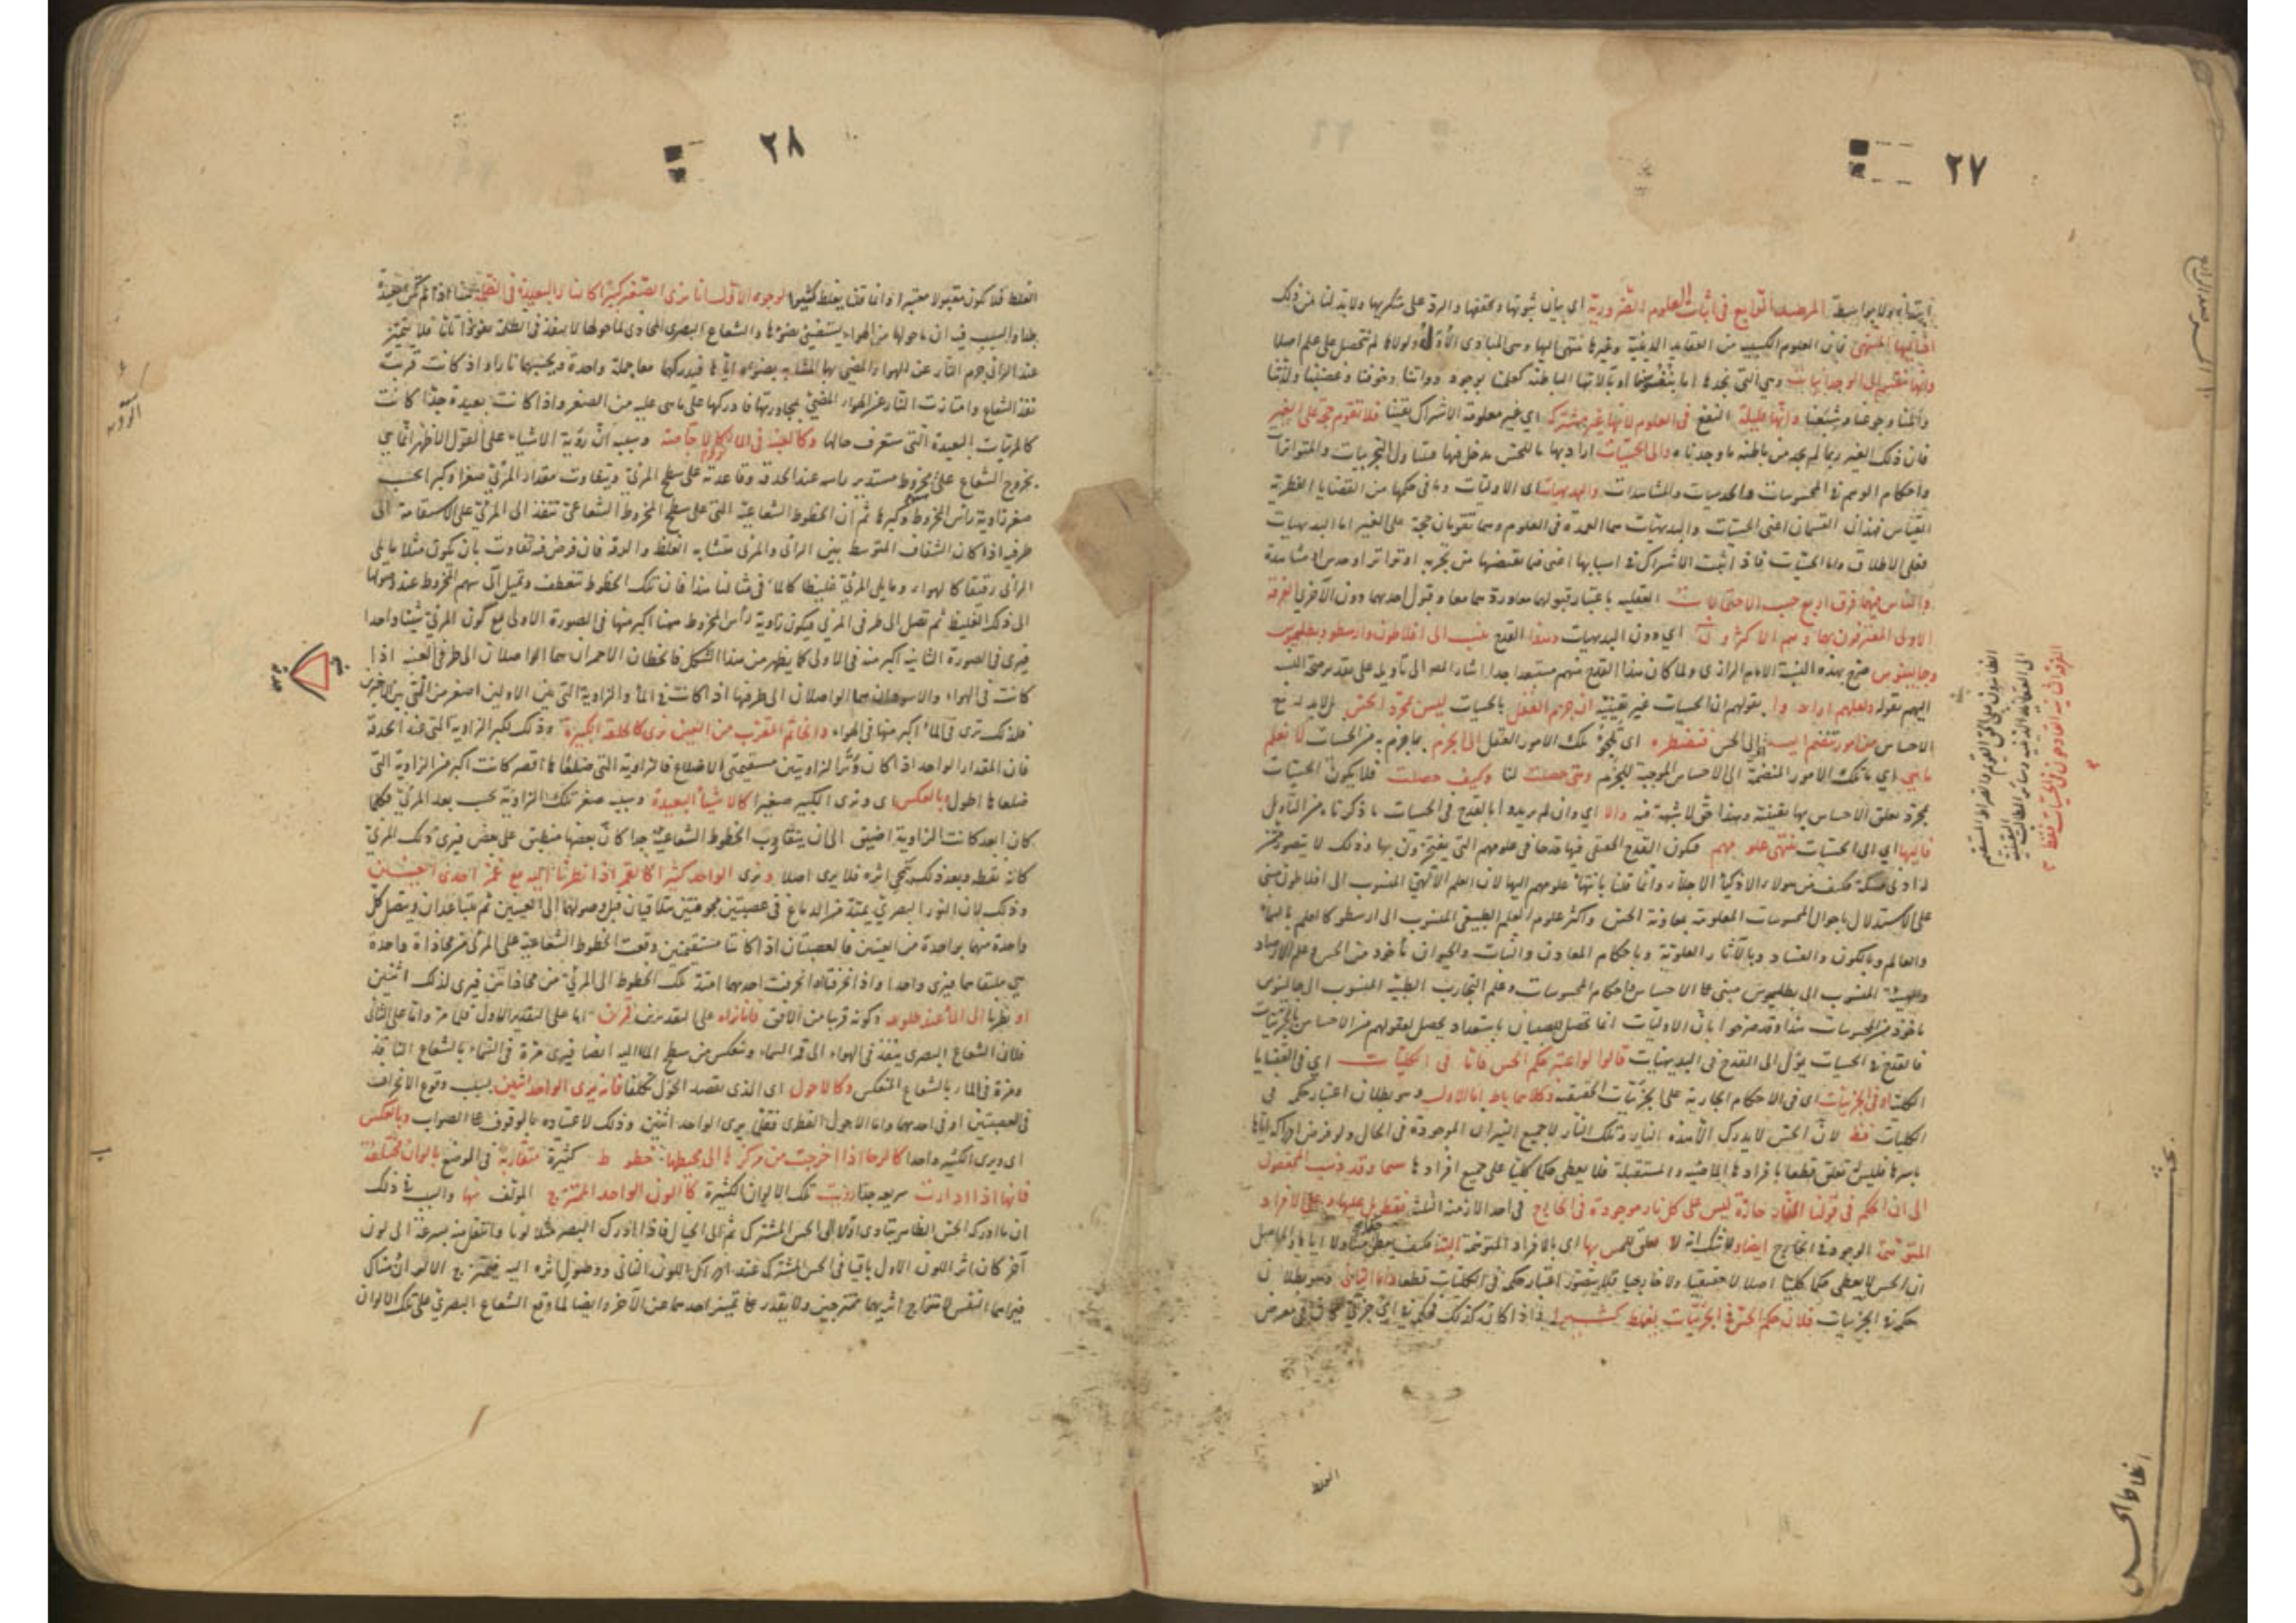 ٢٧
ابتداء او بواسطة المرصد الرابع في اثبات العلوم الضرورية اى بيان ثبوتها وتحققها والرد على منكريها ولا بد لنا من ذلك
اذ اليها المنتهى فان العلوم الكسبية من العقايد الدينية وغيرها تنتهى اليها وهى المبادى الأول ولولاها لم نتحصل على علم اصلا
وانها تنقسم الى الوجدانيات وهى التى نجدها اما بنفوسنا او بآلاتها الباطنة كعلمنا بوجود ذواتنا وخوفنا وغضبنا ولذتنا
وألمنا وجوعنا وشبعنا وانها قليلة النفع فى العلوم لانها غير مشتركة اى غير معلومة الاشتراك يقينا فلا تقوم حجة على الغير
فان ذلك الغير ربما لم يجد من باطنه ما وجدناه والى الحسيات اراد بها ما للحس مدخل فيها فيتناول التجربيات والمتواترات
واحكام الوهم فى المحسوسات والحدسيات والمشاهدات والبديهيات اى الاوليات وما فى حكمها من القضايا الفطرية
القياس فهذان القسمان اعنى الحسيات والبديهيات هما العمدة فى العلوم وهما تقومان حجة على الغير اما البديهيات
فعلى الاطلاق واما الحسيات فاذا ثبت الاشتراك فى اسبابها اعنى فيما يقتضيها من تجربة او تواتر او حدس او مشاهدة
والناس فيهما فرق اربع حسب الاحتمالات العقلية باعتبار قبولهما معا وردهما معا وقبول احدهما دون الآخر الفرقة
الاولى المعترفون بهما وهم الاكثرون اى دون البديهيات وهذا القدح ينسب الى افلاطون وارسطو وبطليموس
وجالينوس صرح بهذه النسبة الامام الرازى ولما كان هذا القدح منهم مستبعدا جدا اشار المص الى تأويله على تقدير صحة النسبة
اليهم بقوله ولعلهم ارادوا بقولهم ان الحسيات غير يقينية ان جزم العقل بالحسيات ليس بمجرد الحس بل لا بد له مع
الاحساس من امور تنضم اليه اى الى الحس فتضطره اى تلجئ تلك الامور العقل الى الجزم بما جزم به من الحسيات لا نعلم
ما هى اى ما تلك الامور المنضمة الى الاحساس الموجبة للجزم ومتى حصلت لنا وكيف حصلت فلا يكون الحسيات
بمجرد تعلق الاحساس بها يقينية وهذا حق لا شبهة فيه والا اى وان لم يريدوا بالقدح فى الحسيات ما ذكرناه من التأويل
فاليها اى الى الحسيات تنتهى علومهم فيكون القدح الحقيقى فيها قدحا فى علومهم التى يفتخرون بها وذلك لا يتصور ممن
له ادنى مسكة فكيف من هؤلاء الاذكياء الاجلاء وانما قلنا بانتهاء علومهم اليها لان العلم الالهى المنسوب الى افلاطون مبنى
على الاستدلال باحوال المحسوسات المعلومة بمعاونة الحس واكثر علوم العلم الطبيعى المنسوب الى ارسطو كالعلم بالسماء
والعالم وبالكون والفساد وبالآثار العلوية وباحكام المعادن والنبات والحيوان مأخوذ من الحس وعلم الارصاد
والهيئة المنسوب الى بطليموس مبنى على الاحساس واحكام المحسوسات وعلم التجارب الطبية المنسوب الى جالينوس
مأخوذ من المحسوسات هذا وقد صرحوا بان الاوليات انما تحصل للصبيان باستعداد يحصل لعقولهم من الاحساس بالجزئيات
فالقدح فى الحسيات يؤل الى القدح فى البديهيات قالوا لو اعتبر حكم الحس فاما فى الكليات اى فى القضايا
الكلية او فى الجزئيات اى فى الاحكام الجارية على الجزئيات الحقيقية وكلاهما باطل اما الاول وهو بطلان اعتبار حكمه فى
الكليات فظ لان الحس لا يدرك الا هذه النار وتلك النار لا جميع النيران الموجودة فى الحال ولو فرض ادراكه اياها
باسرها فليس تعلق قطعا بافرادها الماضية والمستقبلة فلا يعطى حكما كليا على جميع افرادها سيما وقد ذهب المحققون
الى ان الحكم فى قولنا النار حارة ليس على كل نار موجودة فى الخارج فى احد الازمنة الثلثة فقط بل عليها وعلى الافراد
المتوهمة الوجود فى الخارج ايضا ولا شك انه لا تعلق للحس بها اى بالافراد المتوهمة البتة فكيف يعطى حكما متناولا اياها والحاصل
ان الحس لا يعطى حكما كليا اصلا لا حقيقيا ولا خارجيا فلا يتصور اعتبار حكمه فى الكليات قطعا واما الثانى وهو بطلان
حكمه فى الجزئيات فلان حكم الحس فى الجزئيات يغلط كثيرا واذا كان كذلك فحكمه فى اى جزئى كان فى معرض
الغلط
الفرقة الثانية القادحون فى الحسيات فقط
اغلاط الحس
المرصد الرابع
٢٨
الغلط فلا يكون مقبولا معتبرا وانما قلنا يغلط كثيرا لوجوه الاول انا نرى الصغير كبيرا كالنار البعيدة فى الظلمة هذا اذا لم تكن بعيدة
جدا والسبب فيه ان ما حولها من الهواء يستضئ بضوئها والشعاع البصرى المحاذى لما حولها لا ينفذ فى الظلمة نفوذا تاما فلا يتميز
عند الرائى جرم النار عن الهواء المضئ بها المشابه بضوئه اياها فيدركهما معا جملة واحدة ويحسبهما نارا واذا كانت قريبة
نفذ الشعاع وامتازت النار عن الهواء المضئ بمجاورتها فادركها على ما هى عليه من الصغر واذا كانت بعيدة جدا كانت
كالمرئيات البعيدة التى ستعرف حالها وكالعنبة فى الماء ترى كالاجاصة وسببه ان رؤية الاشياء على القول الاظهر انما هى
بخروج الشعاع على مخروط مستدير رأسه عند الحدقة وقاعدته على سطح المرئى ويتفاوت مقدار المرئى صغرا وكبرا بحسب
صغر زاوية رأس المخروط وكبرها ثم ان الخطوط الشعاعية التى على سطح المخروط الشعاعى تنفذ الى المرئى على الاستقامة الى
طرفيه اذا كان الشفاف المتوسط بين الرائى والمرئى متشابه الغلظ والرقة فان فرض فيه تفاوت بان يكون مثلا ما يلى
الرائى رقيقا كالهواء وما يلى المرئى غليظا كالماء فى مثالنا هذا فان تلك الخطوط تنعطف وتميل الى سهم المخروط عند وصولها
الى ذلك الغليظ ثم تصل الى طرفى المرئى فيكون زاوية رأس المخروط ههنا اكبر منها فى الصورة الاولى مع كون المرئى شيئا واحدا
فيرى فى الصورة الثانية اكبر منه فى الاولى كما يظهر من هذا الشكل فالخطان الاحمران هما الواصلان الى طرفى العنبة اذا
كانت فى الهواء والاسودان هما الواصلان الى طرفيها اذا كانت فى الماء والزاوية التى بين الاولين اصغر من التى بين الآخرين
فلذلك ترى فى الماء اكبر منها فى الهواء والخاتم المقرب من العين يرى كالحلقة الكبيرة وذلك لكبر الزاوية التى عند الحدقة
فان المقدار الواحد اذا كان وترا لزاويتين مستقيمتى الاضلاع فالزاوية التى ضلعاها اقصر كانت اكبر من الزاوية التى
ضلعاها اطول وبالعكس اى ونرى الكبير صغيرا كالاشياء البعيدة وسببه صغر تلك الزاوية بحسب بعد المرئى فكلما
كان ابعد كانت الزاوية اضيق الى ان يتقارب الخطوط الشعاعية جدا كان بعضها منطبق على بعض فيرى ذلك المرئى
كانه نقطة وبعد ذلك يمحى اثره فلا يرى اصلا ونرى الواحد كثيرا كالقمر اذا نظرنا اليه مع غمز احدى العينين
وذلك لان النور البصرى يمتد من الدماغ فى عصبتين مجوفتين متلاقيان قبل وصولهما الى العينين ثم يتباعدان ويتصل كل
واحدة منهما بواحدة من العينين فالعصبتان اذا كانتا مستقيمتين وقعت الخطوط الشعاعية على المرئى من محاذاة واحدة
هى ملتقاهما فيرى واحدا واذا انحرفتا او انحرفت احديهما امتد تلك الخطوط الى المرئى من محاذاتين فيرى لذلك اثنين
او نظرنا الى الماء عند طلوعه وكونه قريبا من الافق فانا نراه على التقديرين قمرين اما على التقدير الاول فلما مر واما على الثانى
فلان الشعاع البصرى ينفذ فى الهواء الى قمر السماء وينعكس من سطح الماء اليه ايضا فيرى مرة فى السماء بالشعاع النافذ
ومرة فى الماء بالشعاع المنعكس وكالاحول اى الذى يقصد الحول تكلفا فانه يرى الواحد اثنين بسبب وقوع الانحراف
فى العصبتين او فى احديهما واما الاحول الفطرى فقلما يرى الواحد اثنين وذلك لاعتياده بالوقوف على الصواب وبالعكس
اى ونرى الكثير واحدا كالرحا اذا اخرجت من مركزها الى محيطها خطوط كثيرة متقاربة فى الوضع بالوان مختلفة
فانها اذا ادارت سريعة جدا رؤيت تلك الالوان الكثيرة كاللون الواحد الممتزج المؤلف منها والسبب فى ذلك
ان ما ادركه الحس الظاهر يتادى اولا الى الحس المشترك ثم الى الخيال فاذا ادرك البصر مثلا لونا وانتقل منه بسرعة الى لون
آخر كان اثر اللون الاول باقيا فى الحس المشترك عند ادراك اللون الثانى ووصول اثره اليه فيمتزج الاثران هناك
فيراهما النفس لامتزاج اثريهما ممتزجين ولا يقدر على تمييز احدهما عن الآخر وايضا لما وقع الشعاع البصرى على تلك الالوان